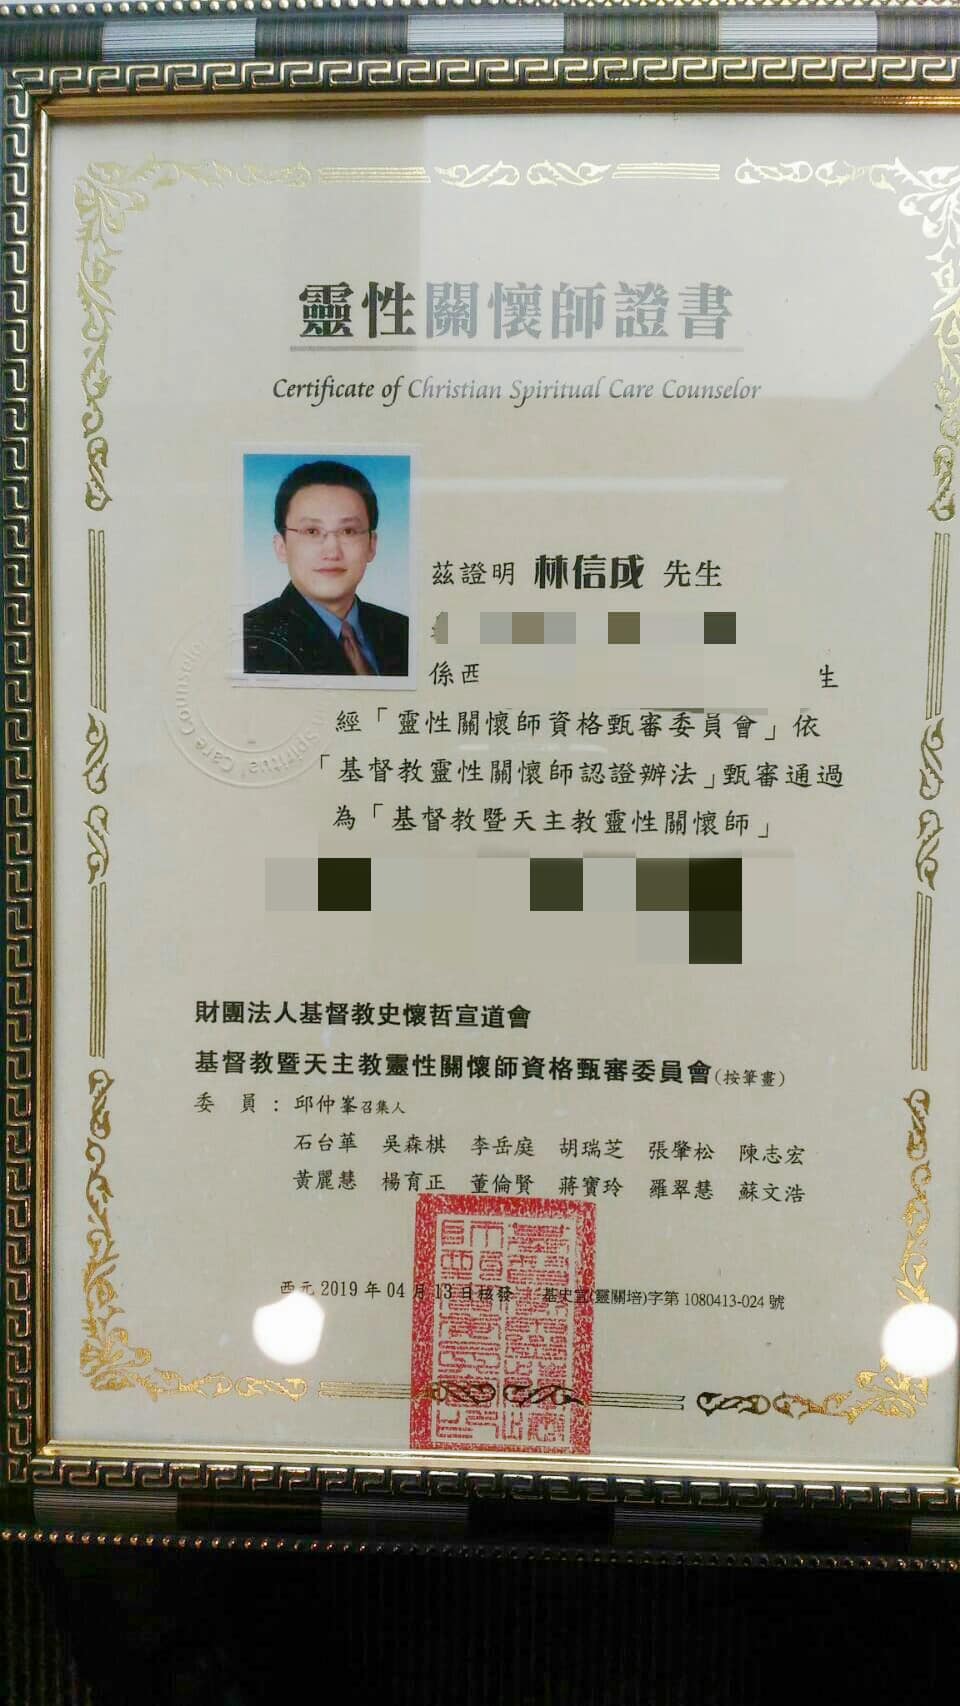 靈性關懷師證書
Certificate of Christian Spiritual Care Counselor
茲證明 林信成 先生
係西 生
經「靈性關懷師資格甄審委員會」依
「基督教靈性關懷師認證辦法」甄審通過
為「基督教暨天主教靈性關懷師」
財團法人基督教史懷哲宣道會
基督教暨天主教靈性關懷師資格甄審委員會(按筆畫)
委 員：邱仲峯召集人
石台華 吳森棋 李岳庭 胡瑞芝 張肇松 陳志宏
黃麗慧 楊育正 董倫賢 蔣寶玲 羅翠慧 蘇文浩
西元 2019 年 04 月 13 日核發 基史宣(靈關培)字第 1080413-024 號